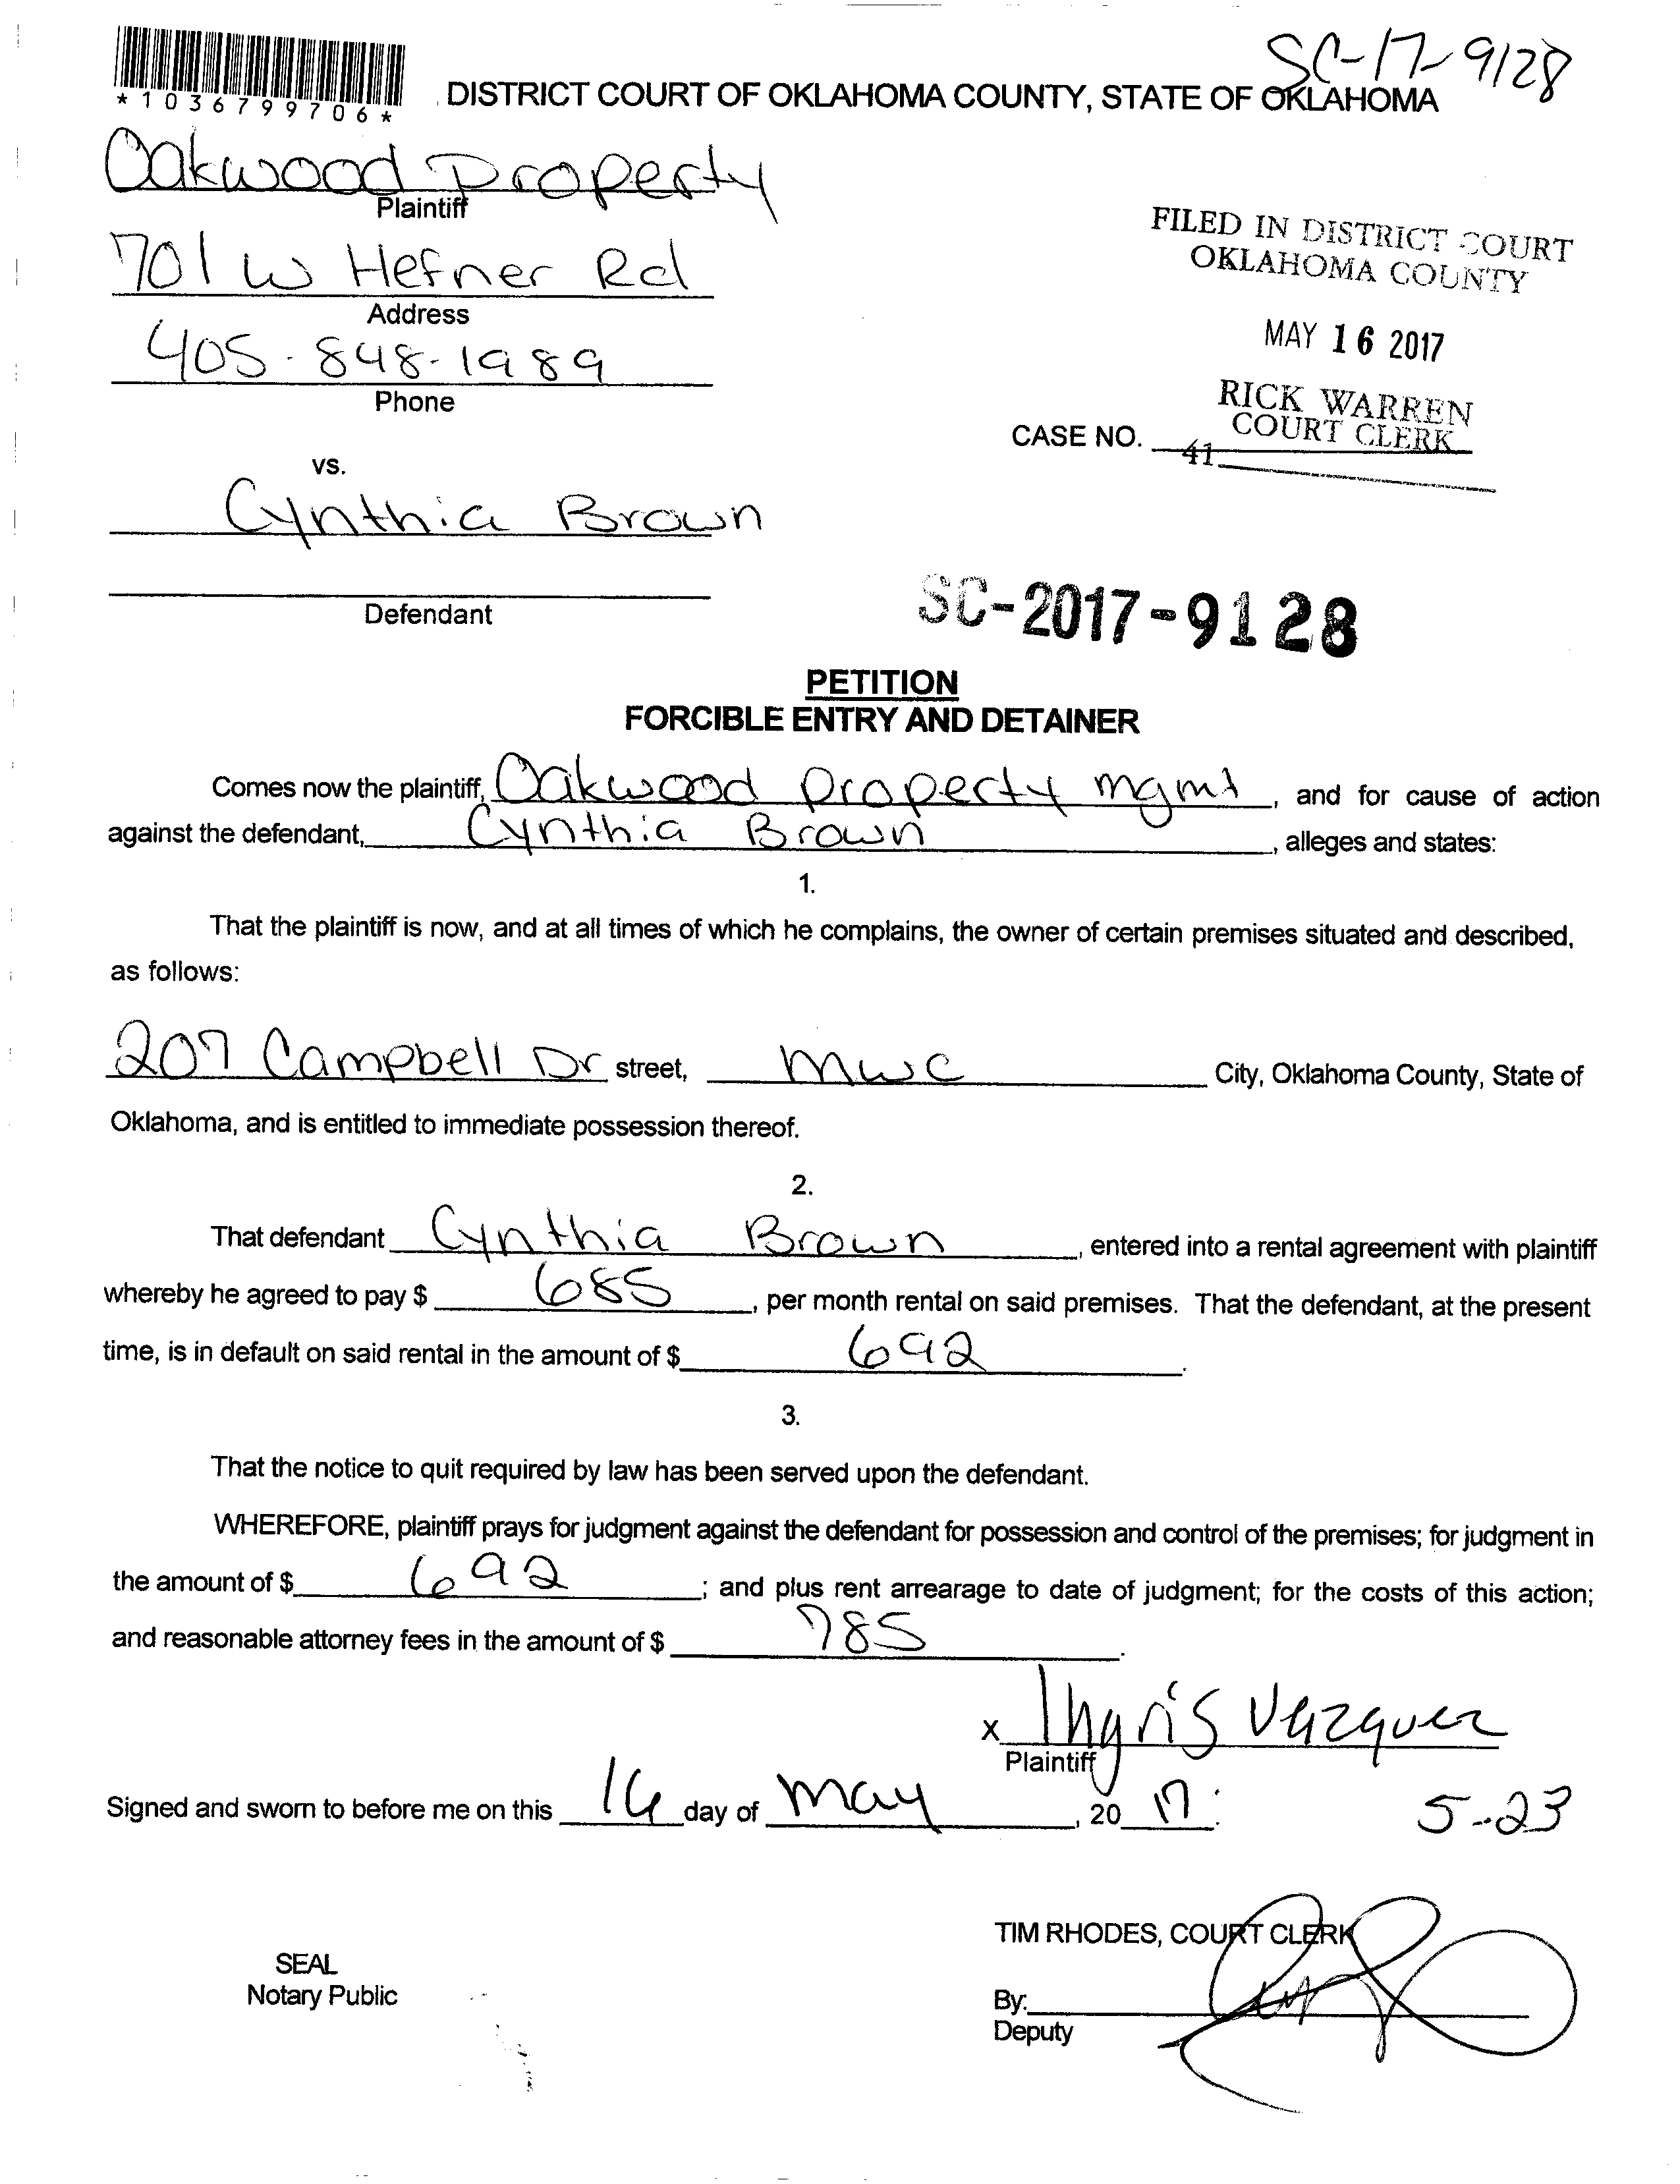 SC-17-9128
*1036799706*
DISTRICT COURT OF OKLAHOMA COUNTY, STATE OF OKLAHOMA
Oakwood Property
Plaintiff
701 W Hefner Rd
Address
405-848-1989
Phone
FILED IN DISTRICT COURT
OKLAHOMA COUNTY
MAY 16 2017
RICK WARREN
COURT CLERK
CASE NO.
41
vs.
Cynthia Brown
Defendant
SC-2017-9128
PETITION
FORCIBLE ENTRY AND DETAINER
Comes now the plaintiff, Oakwood Property mgmt, and for cause of action
against the defendant, Cynthia Brown, alleges and states:
1.
That the plaintiff is now, and at all times of which he complains, the owner of certain premises situated and described,
as follows:
207 Campbell Dr street, MWC City, Oklahoma County, State of
Oklahoma, and is entitled to immediate possession thereof.
2.
That defendant Cynthia Brown, entered into a rental agreement with plaintiff
whereby he agreed to pay $ 685, per month rental on said premises. That the defendant, at the present
time, is in default on said rental in the amount of $ 692.
3.
That the notice to quit required by law has been served upon the defendant.
WHEREFORE, plaintiff prays for judgment against the defendant for possession and control of the premises; for judgment in
the amount of $ 692; and plus rent arrearage to date of judgment; for the costs of this action;
and reasonable attorney fees in the amount of $ 785.
x Thyris Vazquez
Plaintiff
Signed and sworn to before me on this 16 day of May, 20 17.
5-23
TIM RHODES, COURT CLERK
SEAL
Notary Public
By:
Deputy